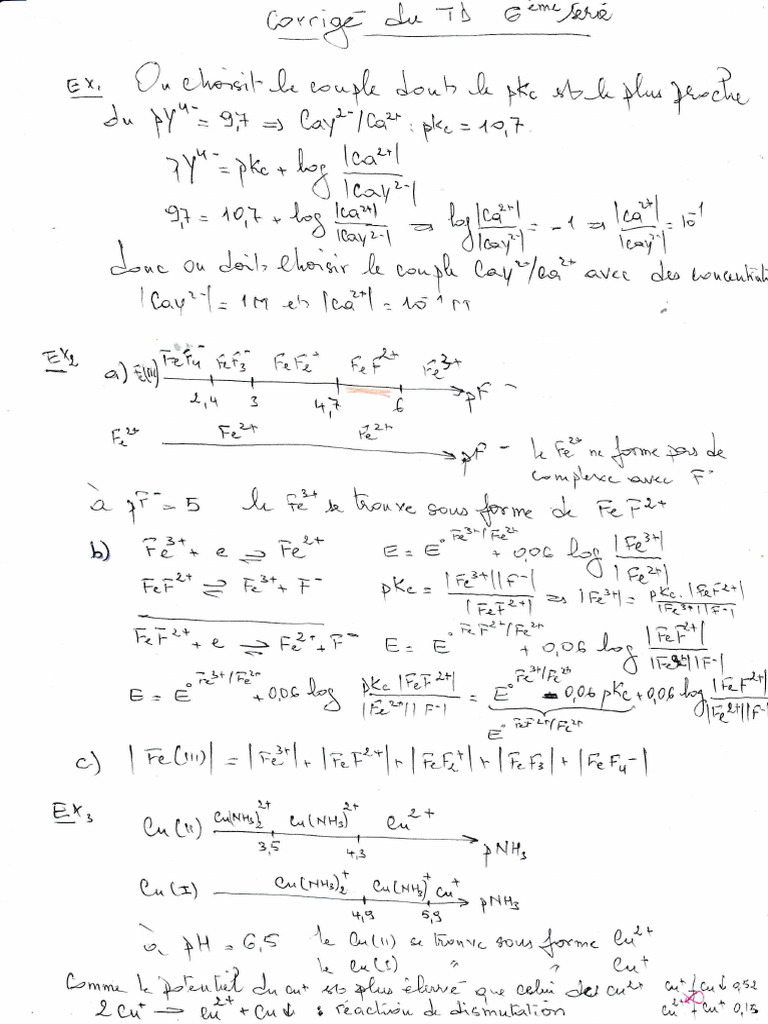 Corrigé du TD 6ème serie
Ex1 On choisit le couple dont le pKc est le plus proche
du pY4- = 9,7 => CaY2-/Ca2+ : pKc = 10,7
pY4- = pKc + log |Ca2+| / |CaY2-|
9,7 = 10,7 + log |Ca2+| / |CaY2-| => log |Ca2+| / |CaY2-| = -1 => |Ca2+| / |CaY2-| = 10-1
donc on doit choisir le couple CaY2-/Ca2+ avec des concentrati
|CaY2-| = 1M et |Ca2+| = 10-1M
Ex2 a) Fe(III) FeF4- FeF3- FeF2+ FeF2+ Fe3+
2,4 3 4,7 6 pF-
Fe2+ Fe2+ Fe2+ pF- le Fe2+ ne forme pas de
complexe avec F-
à pF- = 5 le Fe3+ se trouve sous forme de FeF2+
b) Fe3+ + e ⇌ Fe2+ E = E° Fe3+/Fe2+ + 0,06 log |Fe3+| / |Fe2+|
FeF2+ ⇌ Fe3+ + F- pKc = |Fe3+||F-| / |FeF2+| => |Fe3+| = pKc.|FeF2+| / |Fe3+||F-|
FeF2+ + e ⇌ Fe2+ + F- E = E° FeF2+/Fe2+ + 0,06 log |FeF2+| / |Fe2+||F-|
E = E° Fe3+/Fe2+ + 0,06 log pKc|FeF2+| / |Fe2+||F-| = E° Fe3+/Fe2+ - 0,06 pKc + 0,06 log |FeF2+| / |Fe2+||F-|
E° FeF2+/Fe2+
c) |Fe(III)| = |Fe3+| + |FeF2+| + |FeF2+| + |FeF3| + |FeF4-|
Ex3 Cu(II) Cu(NH3)2 2+ Cu(NH3)2+ Cu2+
3,5 4,3 pNH3
Cu(I) Cu(NH3)2+ Cu(NH3)+ Cu+
4,9 5,9 pNH3
à pH = 6,5 le Cu(II) se trouve sous forme Cu2+
le Cu(I) " " Cu+
Comme le potentiel du Cu+ est plus élevé que celui des Cu2+ Cu+/Cu↓ 0,52
2Cu+ → Cu2+ + Cu↓ : réaction de dismutation Cu2+/Cu+ 0,15